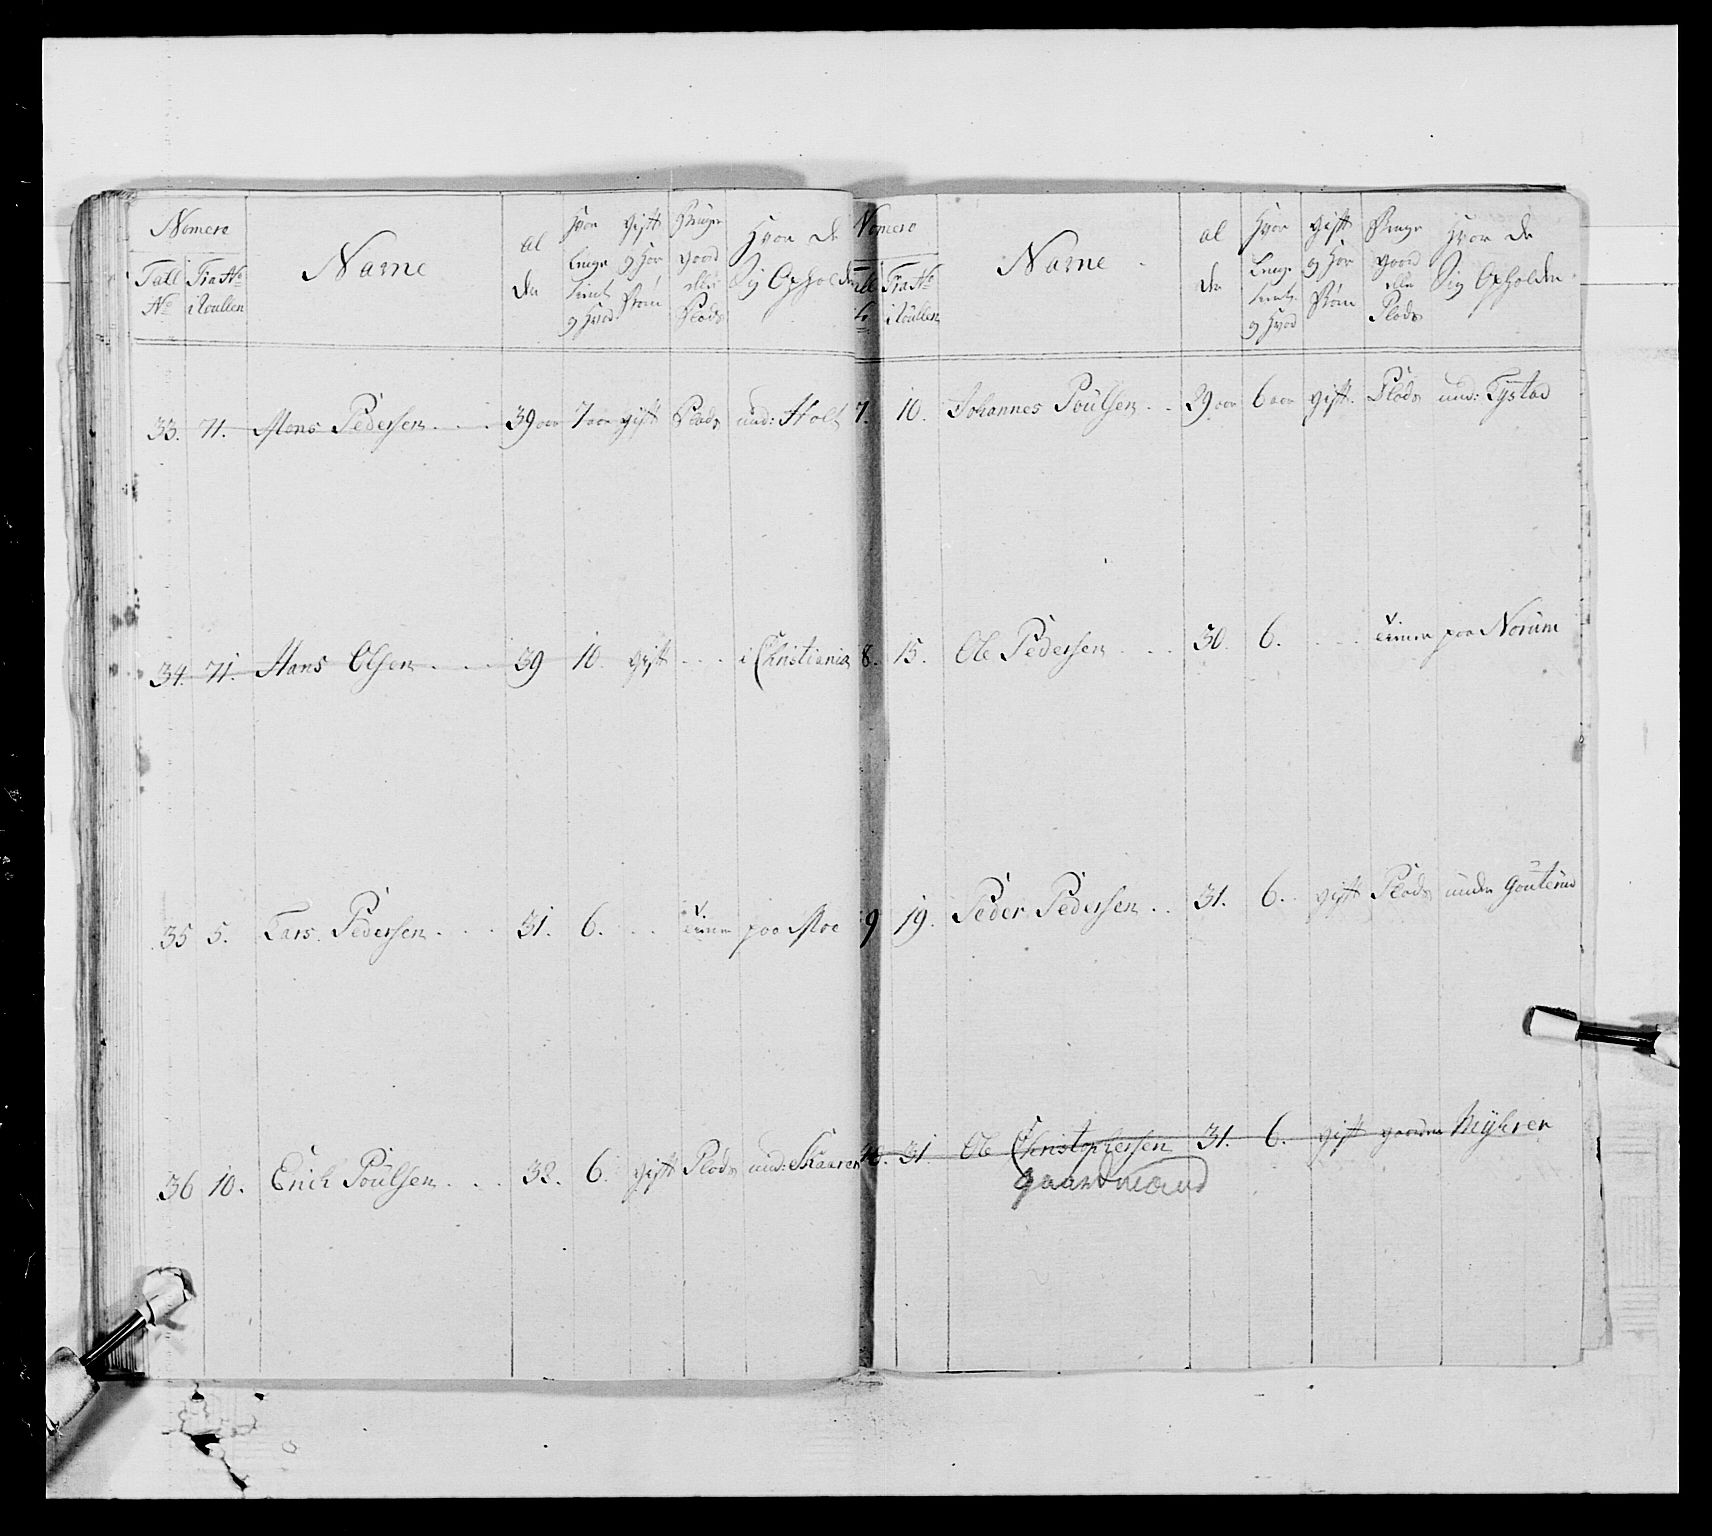 Nomero
Tall No
Fra No i Roullen
Name
al der
Hvor Lenge tient og Hvad
gift og Hor Børn
Bruger gaard eller Plads
Hvor de Sig Opholder
33. 71. Mons Pedersen . . . 39 aar 7 aar gift Plads und: Holt
34. 71. Hans Olsen . . . 39 10. gift . . . i Christiania
35 5. Lars Pedersen . . . 31. 6. . . paa Moe
36 10. Erich Poulsen . . . 32. 6. gift Plads und: Skaaren
Nomero
Fra No i Roullen
Name
al der
Hvor Lenge tient og Hvad
gift og Hor Børn
Bruge gaard elle Plads
Hvor de Sig Opholder
7. 10. Johannes Poulsen . . 29 aar 6 aar gift. Plads und: Tystad
8. 15. Ole Pedersen . . . 30. 6. . . . paa Norum
9 19. Peder Pedersen . . 31. 6. . gift Plads under Gouterud
31. Ole Christophersen 31. 6. gift gaarden Myhren
gaardmand